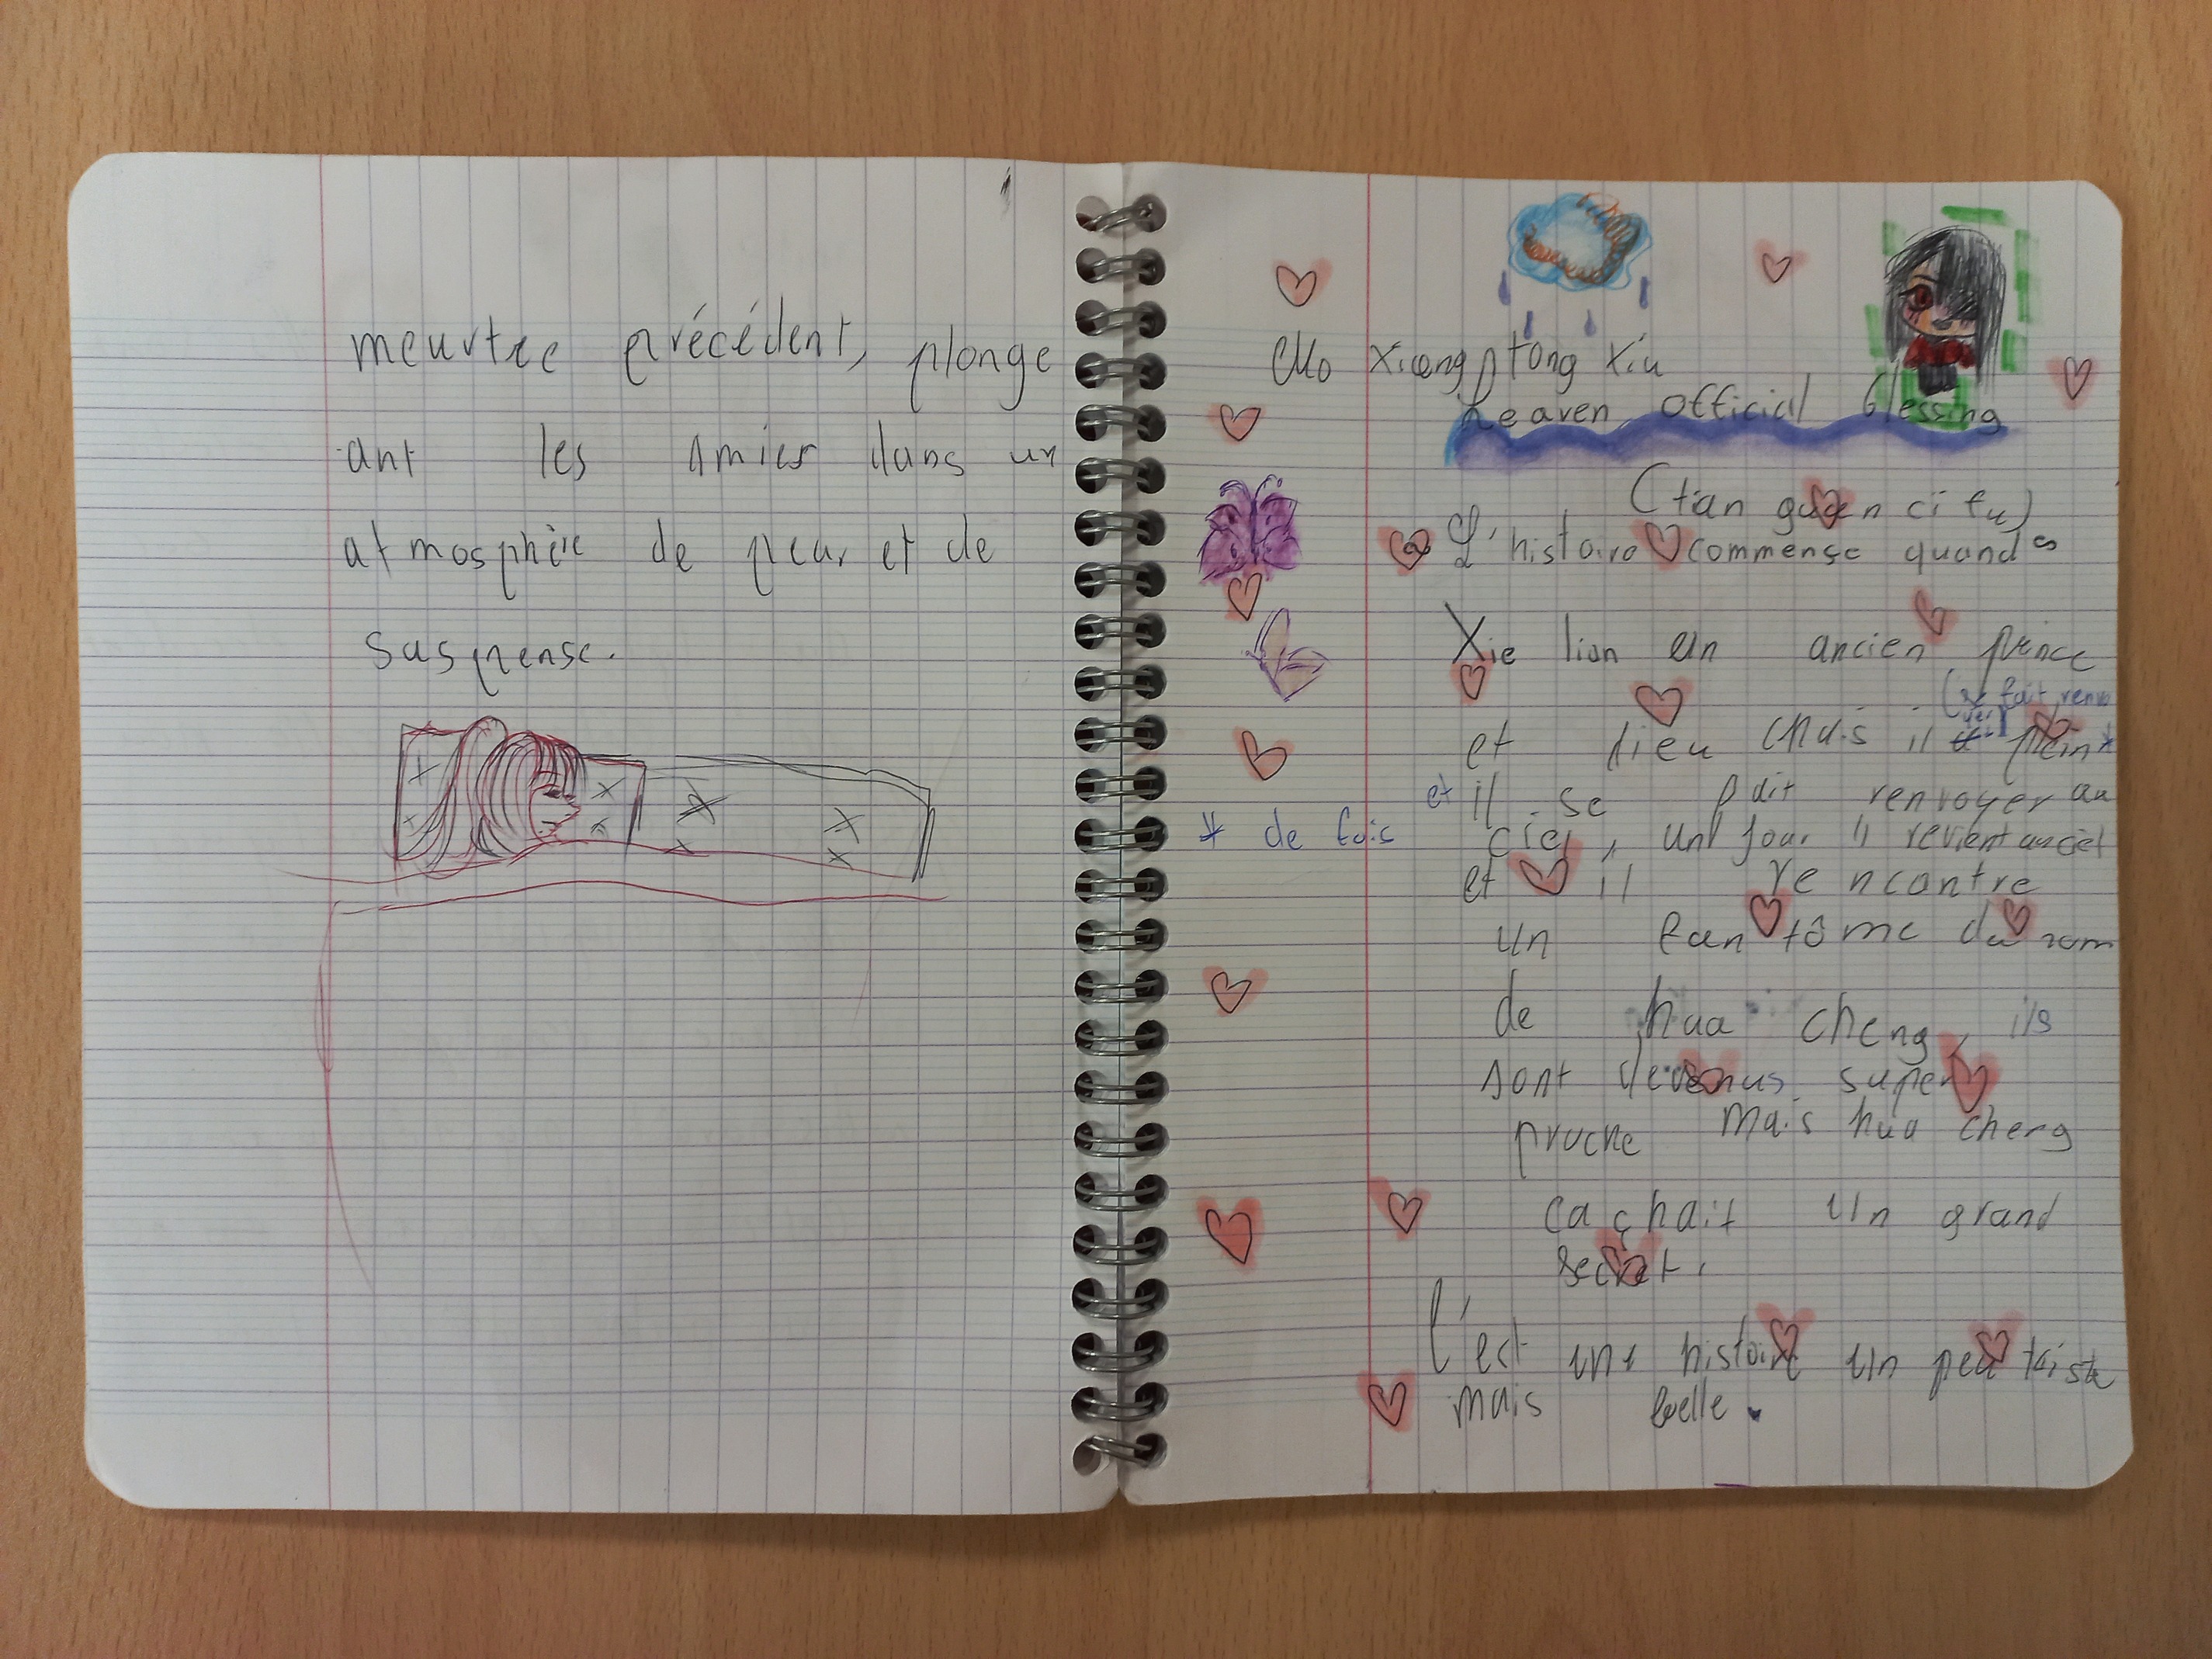 meurtre précédent, plonge
ant les amies dans un
atmosphère de peur et de
suspense.
Mo Xiang tong Xiu
heaven official blessing
(tian guan ci fu)
L'histoire commence quand
Xie lian un ancien prince
(se fait renvo
yer
et dieu mais il plein*
et il se fait renvoyer au
* de fois
ciel, un jour il revient au ciel
et il rencontre
un fantôme du nom
de hua cheng, ils
sont devenus super
proche mais hua cheng
cachait un grand
secret.
C'est une histoire un peu triste
mais belle.